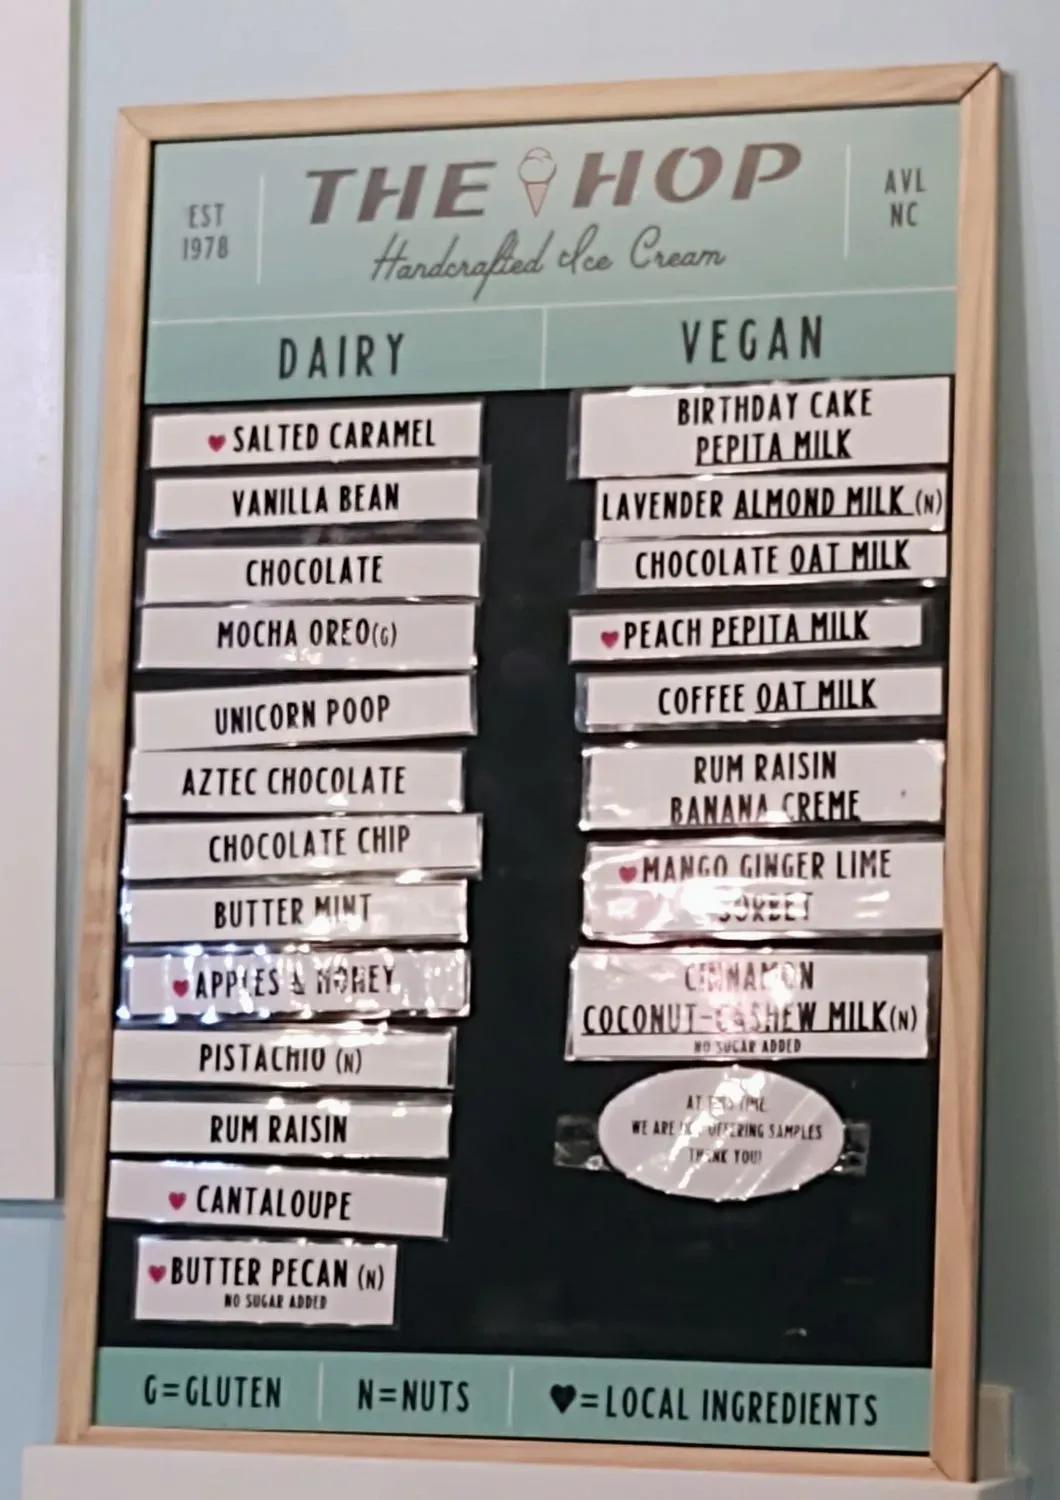 EST
1978
THE HOP
Handcrafted Ice Cream
AVL
NC
DAIRY
SALTED CARAMEL
VANILLA BEAN
CHOCOLATE
MOCHA OREO(G)
UNICORN POOP
AZTEC CHOCOLATE
CHOCOLATE CHIP
BUTTER MINT
♥APPLES & HONEY
PISTACHIO (N)
RUM RAISIN
♥ CANTALOUPE
♥BUTTER PECAN (N)
NO SUGAR ADDED
VEGAN
BIRTHDAY CAKE
PEPITA MILK
LAVENDER ALMOND MILK (N)
CHOCOLATE OAT MILK
♥PEACH PEPITA MILK
COFFEE OAT MILK
RUM RAISIN
BANANA CREME
♥MANGO GINGER LIME
SORBET
CINNAMON
COCONUT-CASHEW MILK(N)
NO SUGAR ADDED
AT THIS TIME
WE ARE NOT OFFERING SAMPLES
THANK YOU!
G=GLUTEN
N=NUTS
♥=LOCAL INGREDIENTS